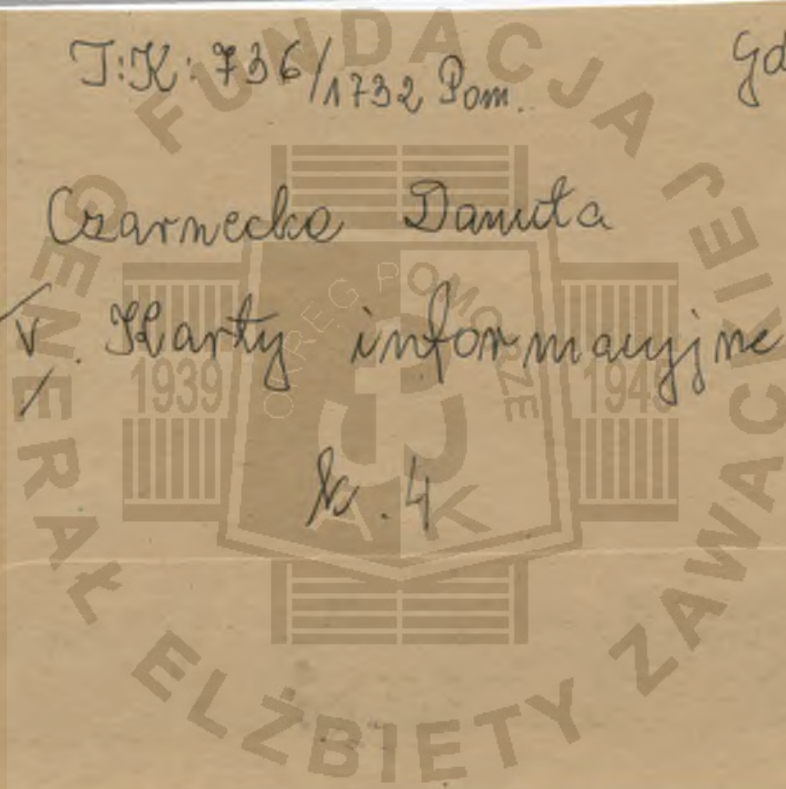 T:K: 736/1732 Pom.
Gd
Czarnecka Danuta
V. Karty informacyjne
k. 4
FUNDACJA
GENERAŁ ELŻBIETY ZAWACKIEJ
OKRĘG POMORZE
1939
1945
AK